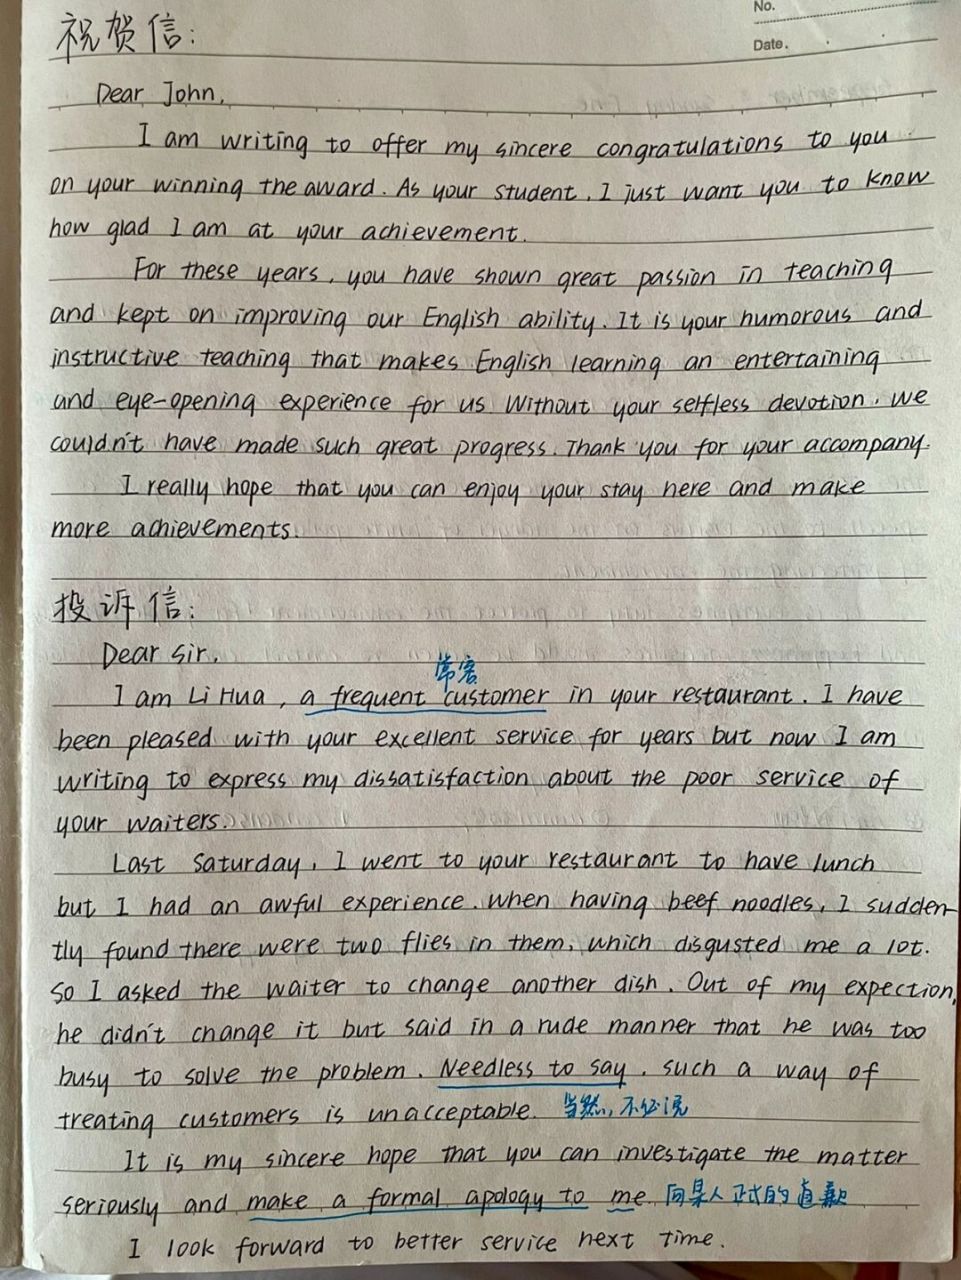 No.
Date.
祝贺信:
Dear John,
I am writing to offer my sincere congratulations to you
on your winning the award. As your student, I just want you to know
how glad I am at your achievement.
For these years, you have shown great passion in teaching
and kept on improving our English ability. It is your humorous and
instructive teaching that makes English learning an entertaining
and eye-opening experience for us Without your selfless devotion, we
couldn't have made such great progress. Thank you for your accompany.
I really hope that you can enjoy your stay here and make
more achievements.
投诉信:
Dear Sir,
常客
I am Li Hua, a frequent customer in your restaurant. I have
been pleased with your excellent service for years but now I am
writing to express my dissatisfaction about the poor service of
your waiters.
Last Saturday, I went to your restaurant to have lunch
but I had an awful experience. When having beef noodles, I sudden-
tly found there were two flies in them, which disgusted me a lot.
So I asked the waiter to change another dish. Out of my expection,
he didn't change it but said in a rude manner that he was too
busy to solve the problem. Needless to say, such a way of
treating customers is unacceptable. 当然, 不必说
It is my sincere hope that you can investigate the matter
seriously and make a formal apology to me. 向某人正式的道歉
I look forward to better service next time.